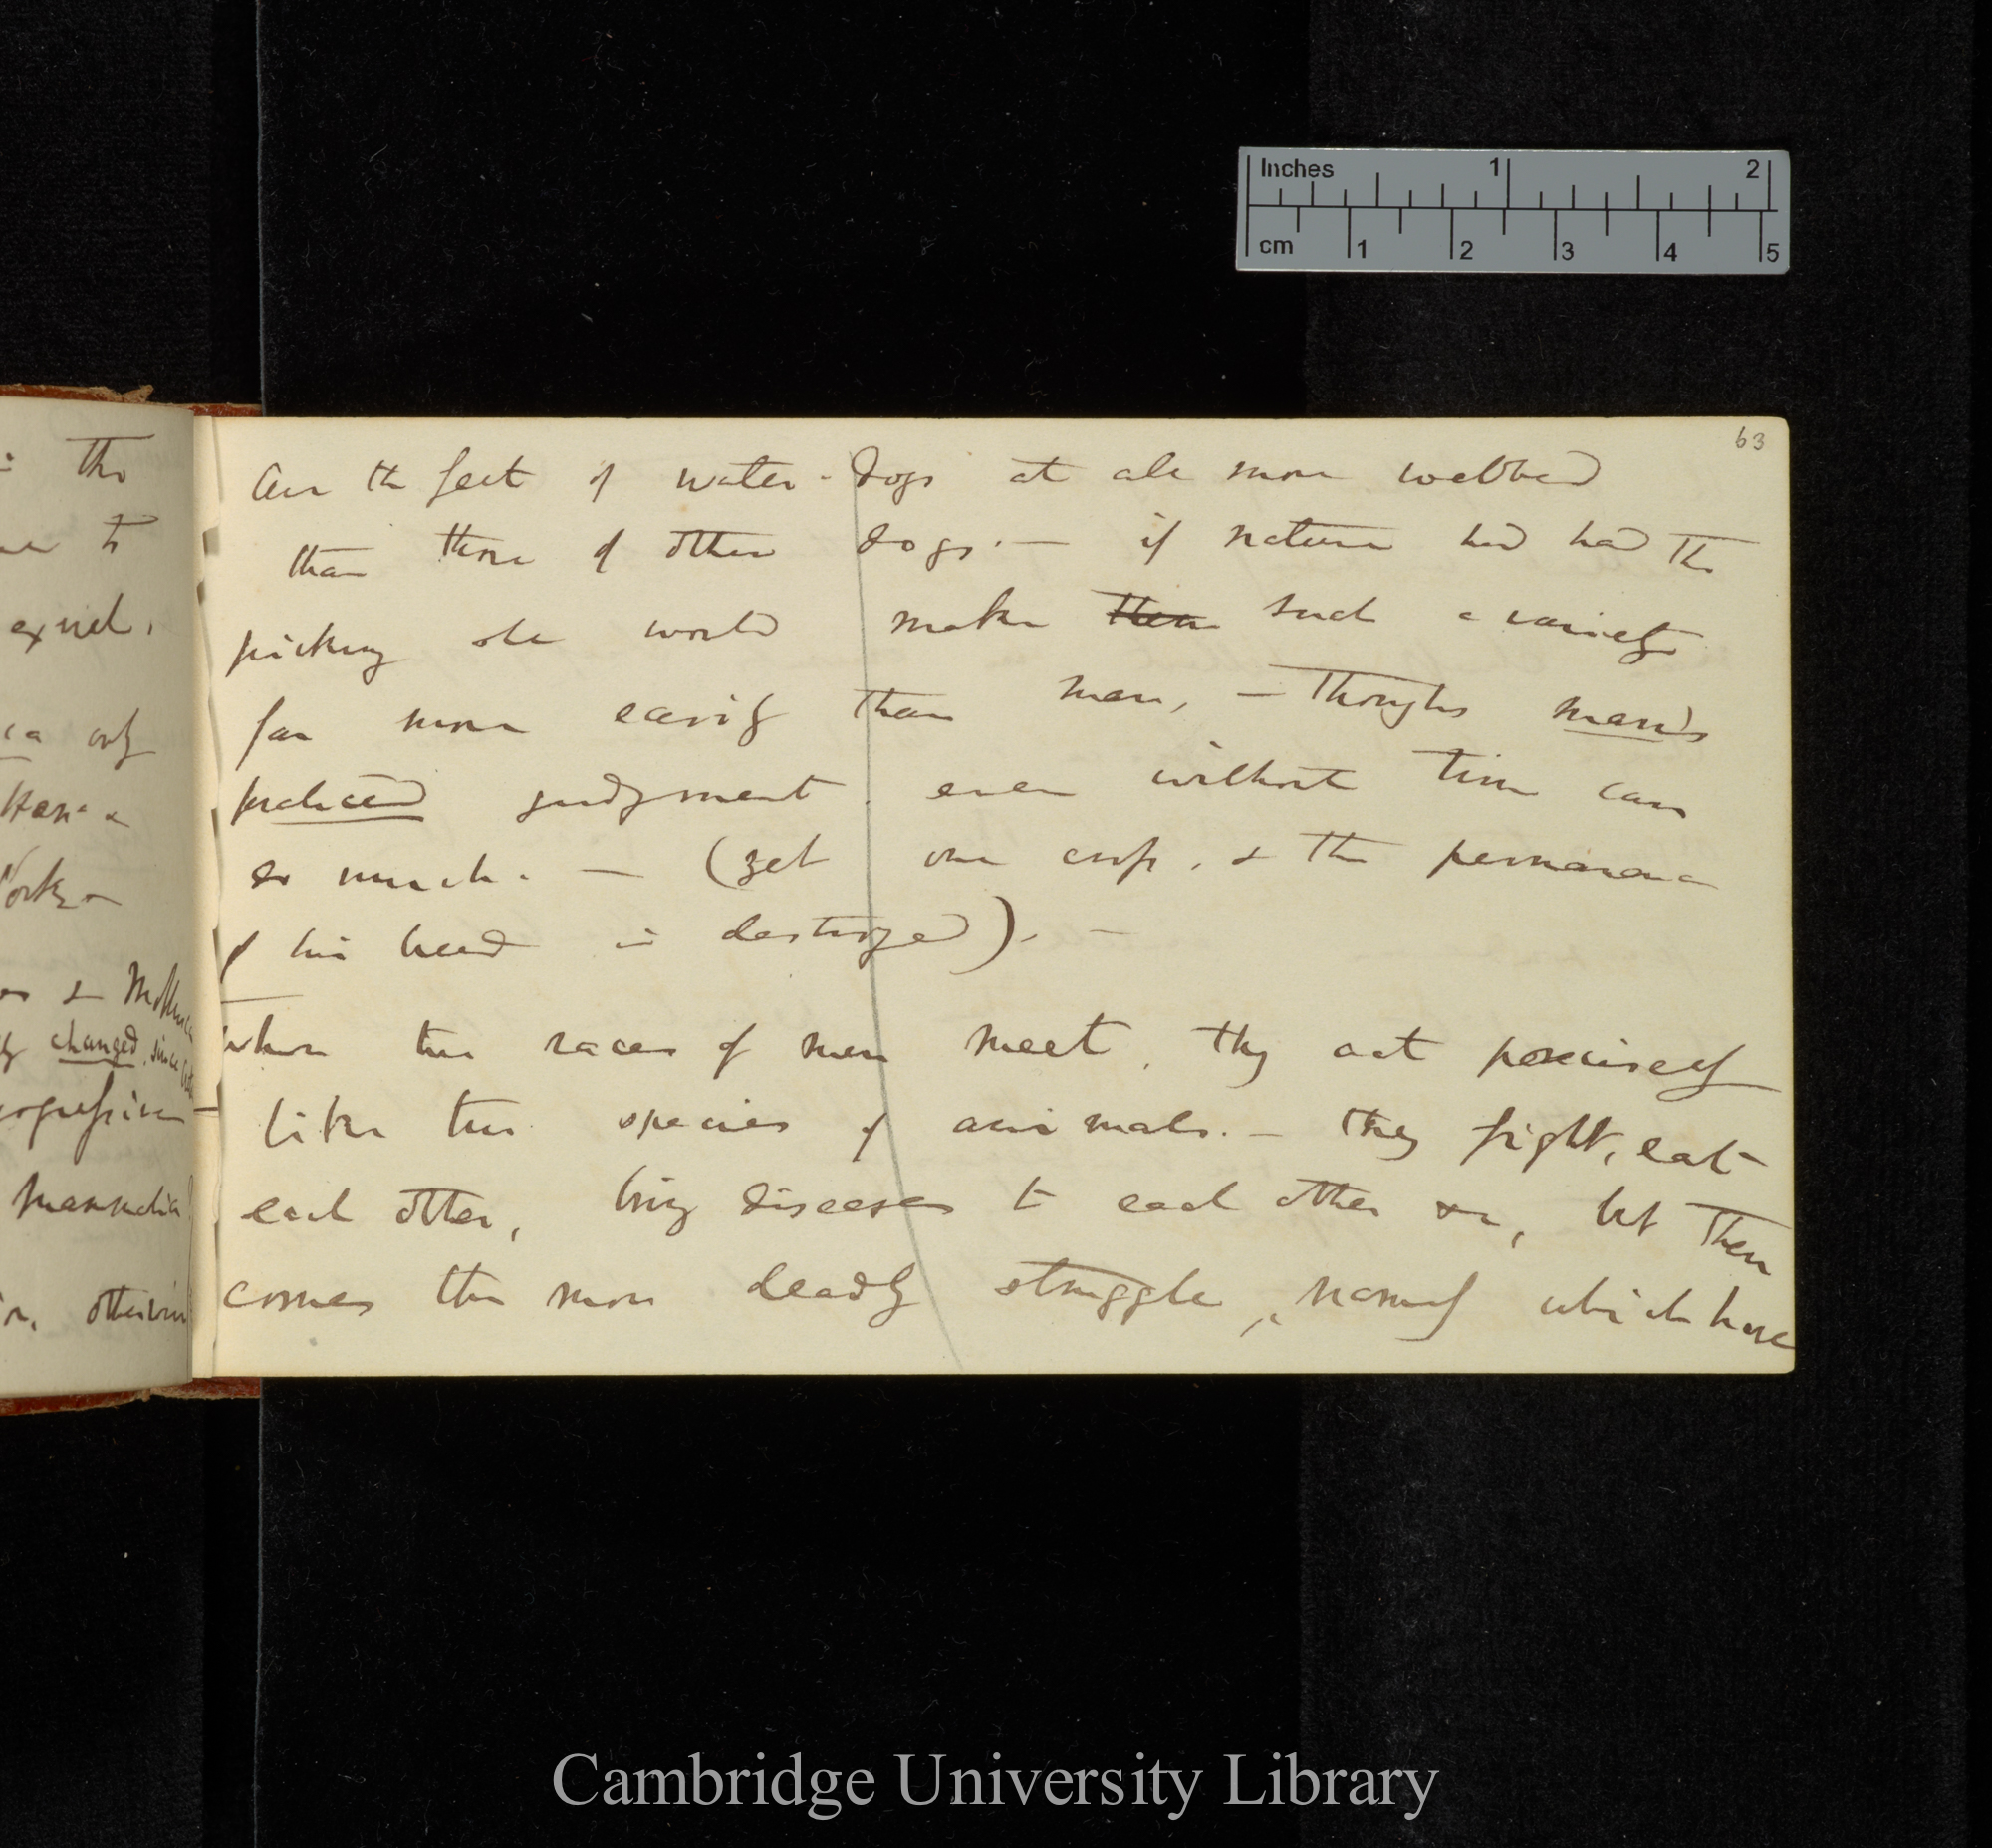 Inches 1 2
cm 1 2 3 4 5
63
Are the feet of water-dogs at all more webbed
than those of other dogs.— if nature had had the
picking she would make them such a variety
far more easily than man, — though man's
practiced judgment even without time can
do much. — (yet one cross, & the permanence
of his breed is destroyed). —
When two races of men meet, they act precisely
like two species of animals. — they fight, eat
each other, bring diseases to each other &c, but then
comes the more deadly struggle, namely which have
the
to
only
& 
changed since
mammalia
otherwise
Cambridge University Library